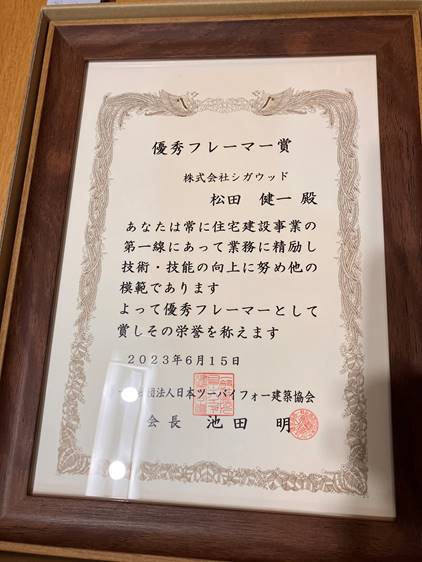 優秀フレーマー賞
株式会社シガウッド
松田 健一 殿
あなたは常に住宅建設事業の
第一線にあって業務に精励し
技術・技能の向上に努め他の
模範であります
よって優秀フレーマーとして
賞しその栄誉を称えます
2023年6月15日
団法人日本ツーバイフォー建築協会
会長 池田 明